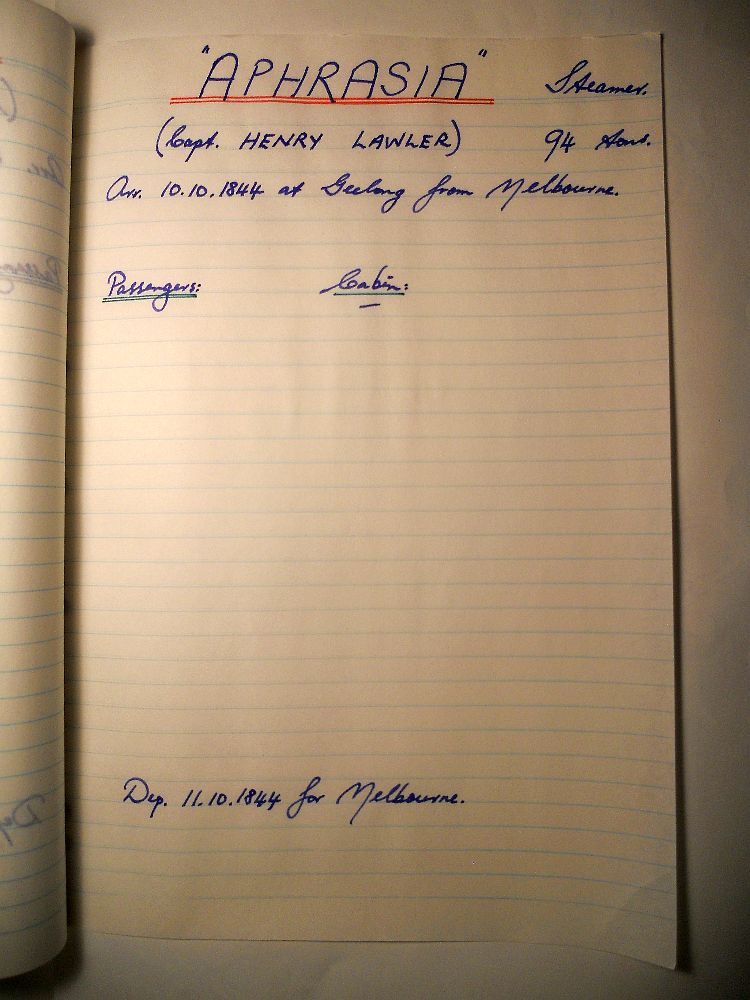 "APHRASIA" Steamer.
(Capt. HENRY LAWLER) 94 tons.
Arr. 10.10.1844 at Geelong from Melbourne.
Passengers: Cabin:
Dep. 11.10.1844 for Melbourne.